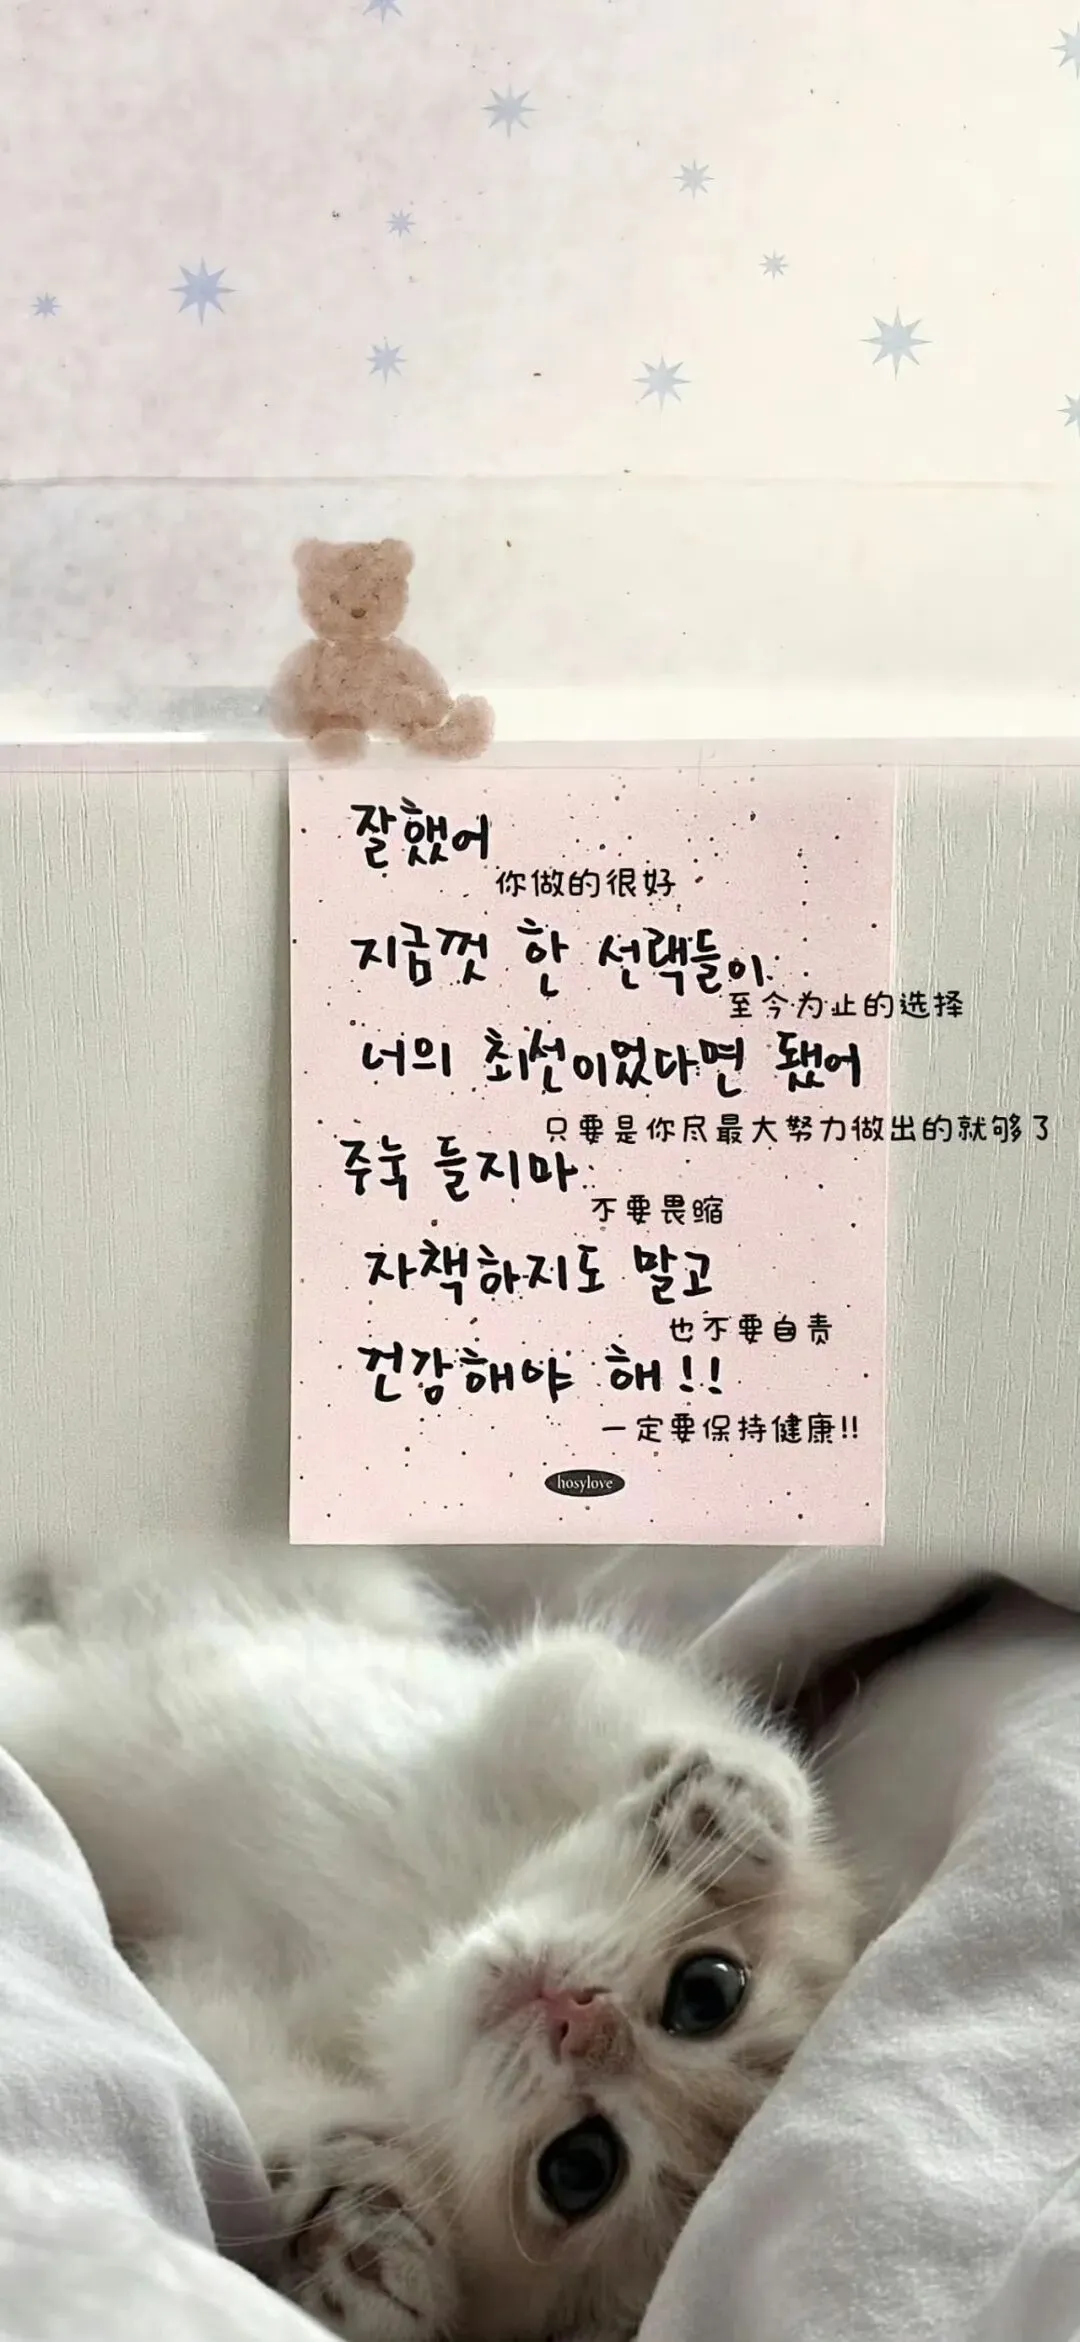 잘했어
你做的很好
지금껏 한 선택들이
至今为止的选择
너의 최선이었다면 됐어
只要是你尽最大努力做出的就够了
주눅 들지마
不要畏缩
자책하지도 말고
也不要自责
건강해야 해!!
一定要保持健康!!
hosylove